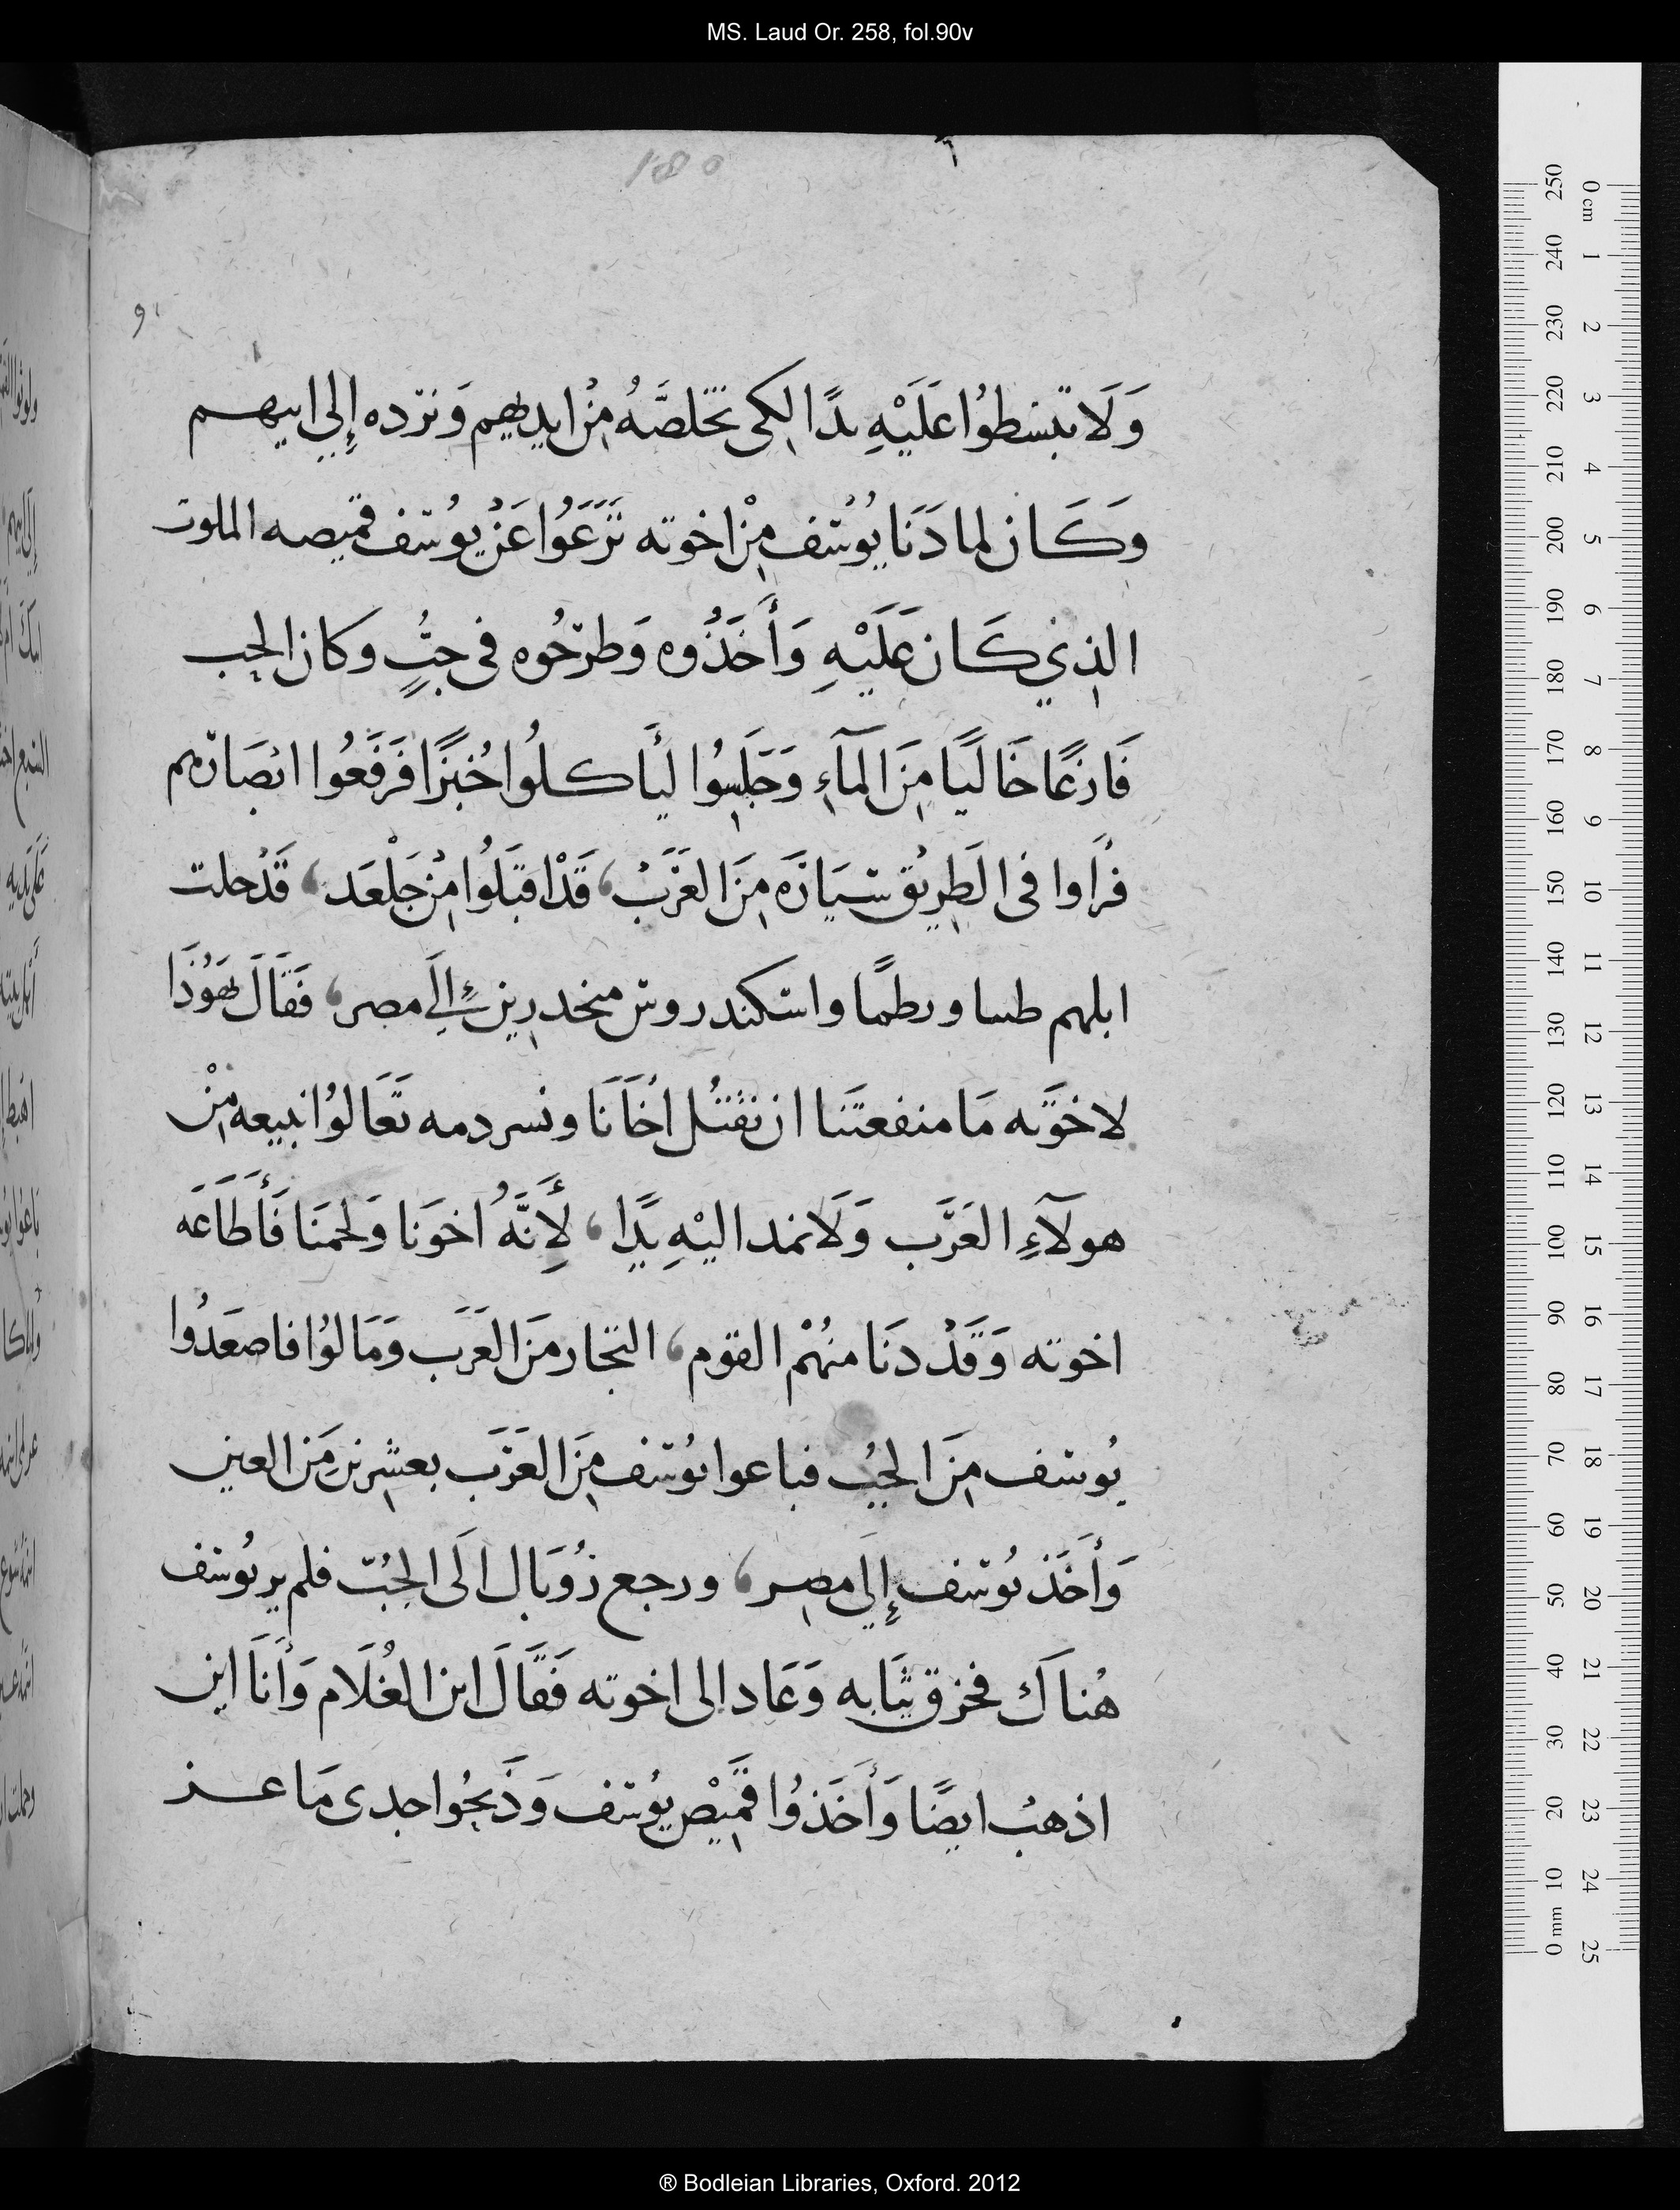 MS. Laud Or. 258, fol.90v
180
وَلَا تبسطوُا عَلَيْهِ يدًا لكى تخلصَّهُ مِنْ ايديهم وَنردّه إِلى ابيهم
وَكَان لما دَنَا يوُسُف مِنْ اخوته نَزَعَوُا عَنْ يوُسف قميصه الملون
الذِي كَان عَلَيْهِ وَأَخَذُوه وَطرحُوه فى جبٍّ وكان الجب
فَارغًا خَاليًا مِنَ المآءِ وَجَلَسِوُا ليَأكلوُا خُبزًا فَرَفَعُوا ابصَارهم
فرَاوا فى الطَرِيق سيَارَه مِنَ العَرَبْ، قَدْ اقبَلوُا مِنْ جَلْعَد، قَدْ حلت
ابلهم طسا ورطمًا واسكندروس منحدرين إِلَى مصر، فَقَالَ يَهوُذَا
لاخوَته مَا منفعتَنا ان نقتُل اخَانَا ونسر دمه تَعَالوُا نبيعه مِنْ
هولآءِ العَرَب وَلَا نمد اليْهِ يدًا، لِأَنَّهُ اخوَنا وَلحمَنا فَأَطَاعَه
اخوته وَقَدْ دَنَا منهُمْ القوم، التجار مَن العَرَب وَمَالوُا فاصعَدُوا
يُوسف مِنَ الجبُ فباعوا يوُسف مِنَ العَرَب بعشرِين مَن العين
وَأَخَذ يوُسف إِلَى مصِر، ورجع رُوبَال الَى الجُبّ فلم ير يوُسف
هُناكَ فخزق ثيَابه وَعَاد الى اخوته فَقَالَ اين الغُلَام وَأَنَا اين
اذهبُ ايضًا وَأَخَذوُا قمَيْص يوُسف وَذَبحُوا جدى مَاعز
® Bodleian Libraries, Oxford. 2012